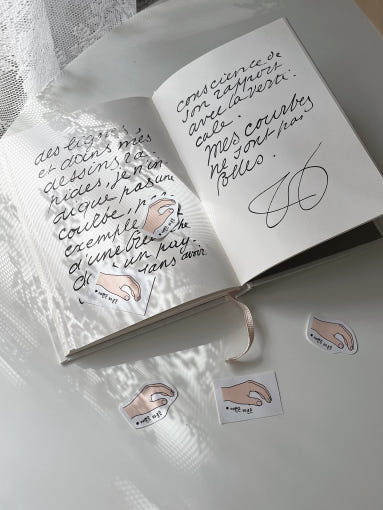 des lignes
et dans mes
dessins ra-
pides, je n'in-
dique pas une
courbe,
exemple
d'une che
un pay-
sans avoir
conscience de
son rapport
avec la verti-
cale.
Mes courbes
ne sont pas
folles.